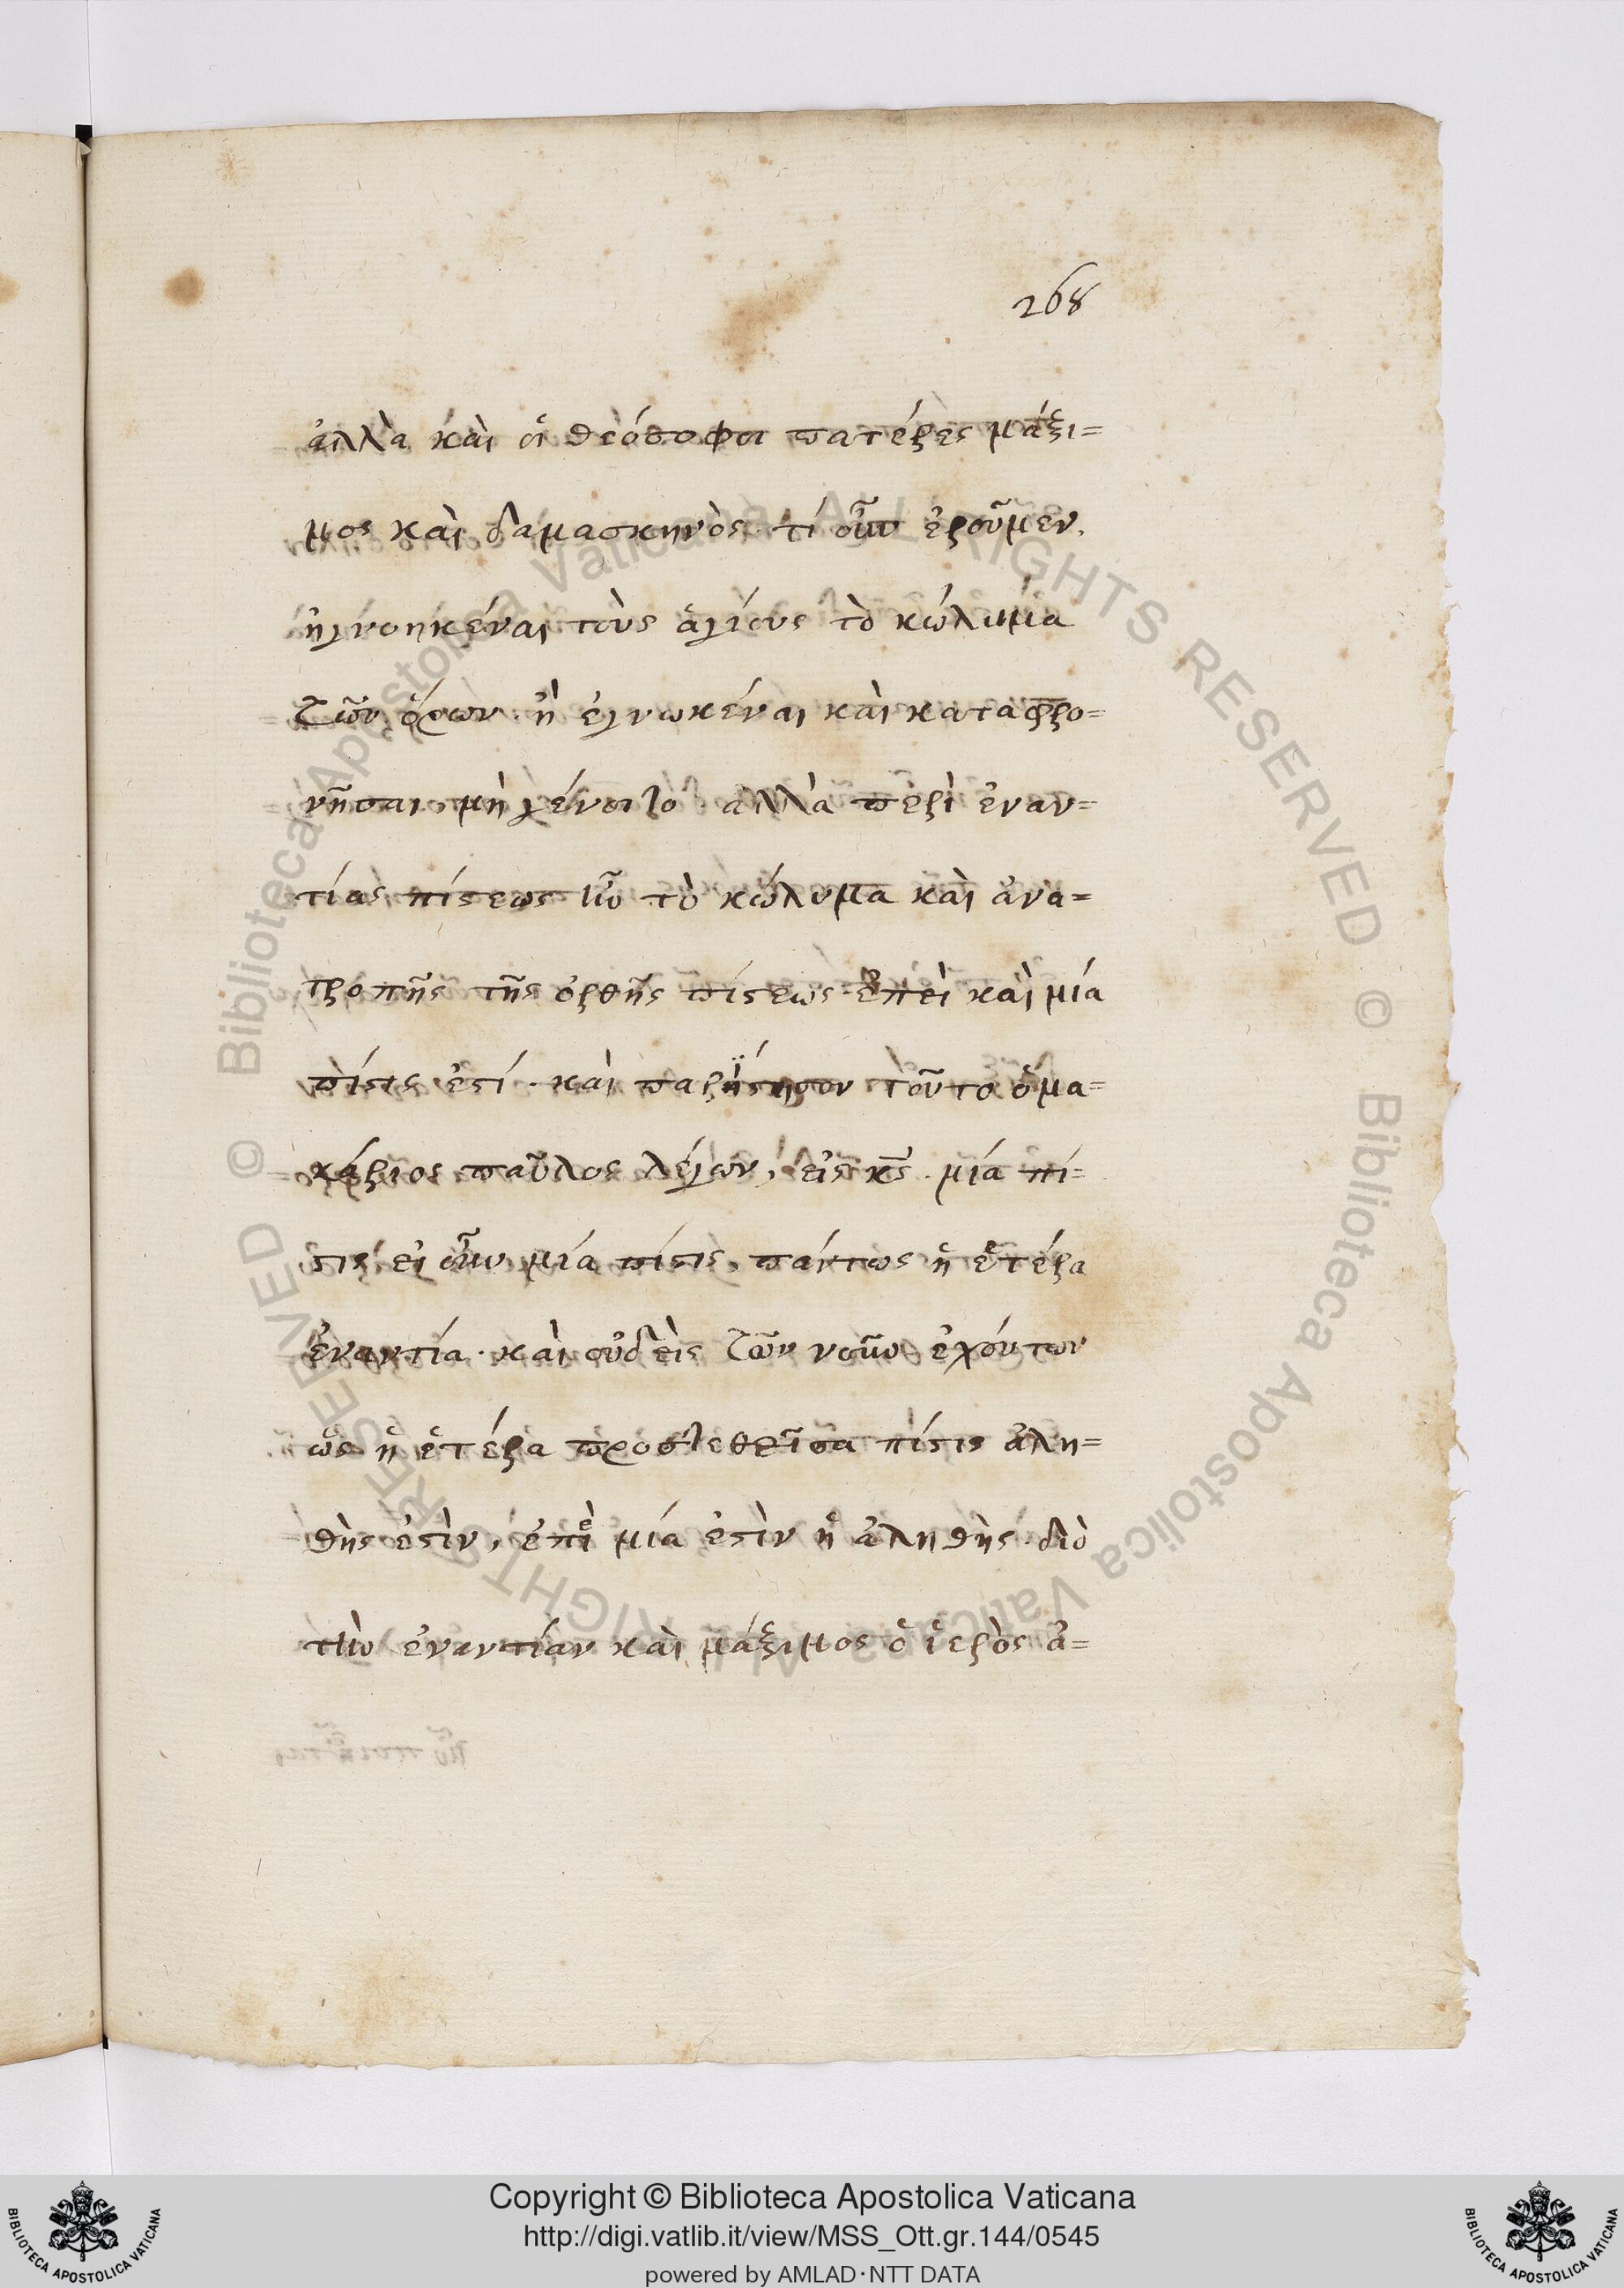 268
ἀλλὰ καὶ οἱ θεόσοφοι πατέρες μάξι=
μος καὶ δαμασκηνὸς· τί οὖν ἐροῦμεν.
ἠγνοηκέναι τοὺς ἁγίους τὸ κώλυμα
τῶν ὅρων· ἢ ἐγνωκέναι καὶ καταφρο=
νῆσαι, μὴ γένοιτο· ἀλλὰ περὶ ἐναν=
τίας πίστεως ἦν τὸ κώλυμα καὶ ἀνα=
τροπῆς τῆς ὀρθῆς πίστεως· ἐπεὶ καὶ μία
πίστις ἐστί· καὶ παρίστησιν τοῦτο ὁ μα=
κάριος παῦλος λέγων, εἷς κς̅· μία πί=
στις· εἰ οὖν μία πίστις, πάντως ἡ ἑτέρα
ἐναντία· καὶ οὐδεὶς τῶν νοῦν ἐχόντων
ὡς ἡ ἑτέρα προστεθεῖσα πίστις ἀλη=
θὴς ἐστὶν, ἐπεὶ μία ἐστὶν ἡ ἀληθὴς· διὸ
τὴν ἐναντίαν καὶ μάξιμος ὁ ἱερὸς ἀ=
Copyright © Biblioteca Apostolica Vaticana
http://digi.vatlib.it/view/MSS_Ott.gr.144/0545
powered by AMLAD·NTT DATA
BIBLIOTECA APOSTOLICA VATICANA
BIBLIOTECA APOSTOLICA VATICANA
© Biblioteca Apostolica Vaticana ALL RIGHTS RESERVED © Biblioteca Apostolica Vaticana ALL RIGHTS RESERVED